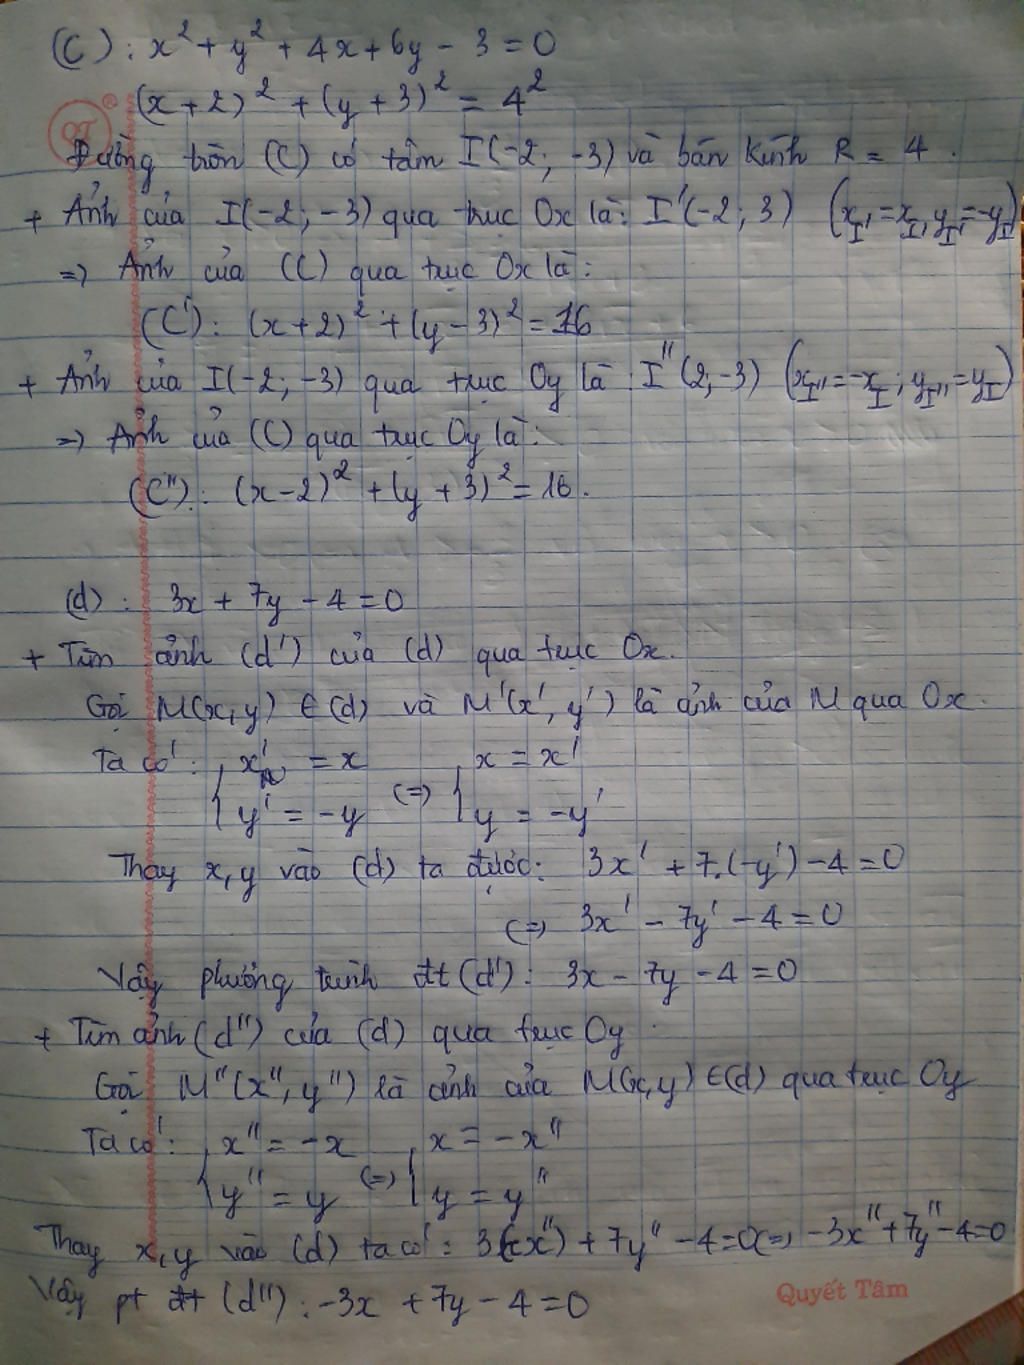 (C) : x² + y² + 4x + 6y - 3 = 0
(x + 2)² + (y + 3)² = 4²
QT ®
Đường tròn (C) có tâm I(-2; -3) và bán kính R = 4.
+ Ảnh của I(-2; -3) qua trục Ox là: I'(-2; 3) (x_I' = x_I, y_I' = -y_I)
=> Ảnh của (C) qua trục Ox là:
(C') : (x+2)² + (y-3)² = 16
+ Ảnh của I(-2; -3) qua trục Oy là : I''(2; -3) (x_I'' = -x_I ; y_I'' = y_I)
=> Ảnh của (C) qua trục Oy là:
(C'') : (x-2)² + (y+3)² = 16.
(d) : 3x + 7y - 4 = 0
+ Tìm ảnh (d') của (d) qua trục Ox.
Gọi M(x, y) ∈ (d) và M'(x', y') là ảnh của M qua Ox.
Ta có : { x' = x (=) { x = x'
y' = -y y = -y'
Thay x, y vào (d) ta được: 3x' + 7.(-y') - 4 = 0
(=) 3x' - 7y' - 4 = 0
Vậy phương trình đt (d') : 3x - 7y - 4 = 0
+ Tìm ảnh (d'') của (d) qua trục Oy
Gọi M''(x'', y'') là ảnh của M(x, y) ∈ (d) qua trục Oy
Ta có : { x'' = -x (=) { x = -x''
y'' = y y = y''
Thay x, y vào (d) ta có : 3(-x'') + 7y'' - 4 = 0 (=) -3x'' + 7y'' - 4 = 0
Vậy pt đt (d'') : -3x + 7y - 4 = 0
Quyết Tâm